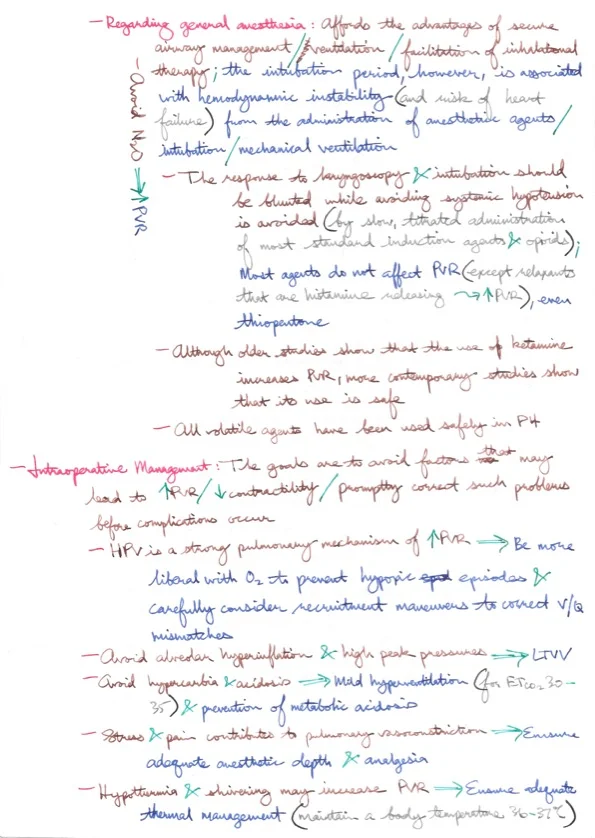 — Regarding general anesthesia : Affords the advantages of secure
airway management / ventilation / facilitation of inhalational
therapy ; the intubation period, however, is associated
with hemodynamic instability (and risk of heart
failure) from the administration of anesthetic agents /
intubation / mechanical ventilation
— Avoid N2O → ↑PVR
— The response to laryngoscopy & intubation should
be blunted while avoiding systemic hypotension
is avoided (by slow, titrated administration
of most standard induction agents & opioids);
Most agents do not affect PVR (except relaxants
that are histamine releasing ⇝ ↑PVR), even
thiopentone
— Although older studies show that the use of ketamine
increases PVR, more contemporary studies show
that its use is safe
— All volatile agents have been used safely in PH
— Intraoperative Management : The goals are to avoid factors that may
lead to ↑PVR / ↓ contractility / promptly correct such problems
before complications occur
— HPV is a strong pulmonary mechanism of ↑PVR ⇒ Be more
liberal with O2 to prevent hypoxic episodes &
carefully consider recruitment maneuvers to correct V/Q
mismatches
— Avoid alveolar hyperinflation & high peak pressures ⇒ LTVV
— Avoid hypercarbia & acidosis ⇒ Mild hyperventilation (for ETCO2 30–
35) & prevention of metabolic acidosis
— Stress & pain contributes to pulmonary vasoconstriction → Ensure
adequate anesthetic depth & analgesia
— Hypothermia & shivering may increase PVR ⇒ Ensure adequate
thermal management (maintain a body temperature 36–37°C)